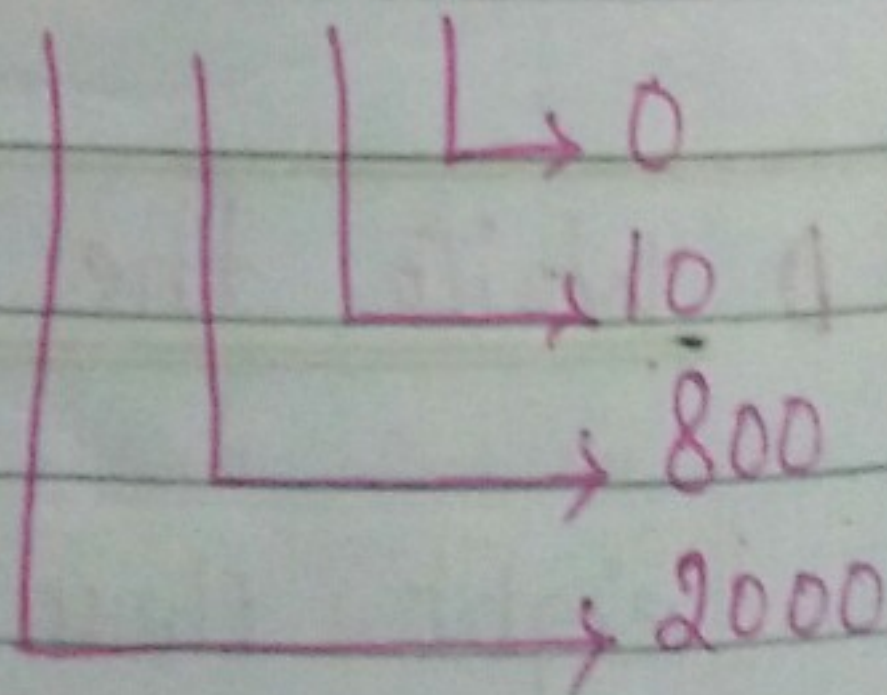 0
10
800
2000